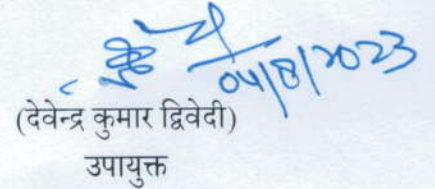 04/8/2023
(देवेन्द्र कुमार द्विवेदी)
उपायुक्त